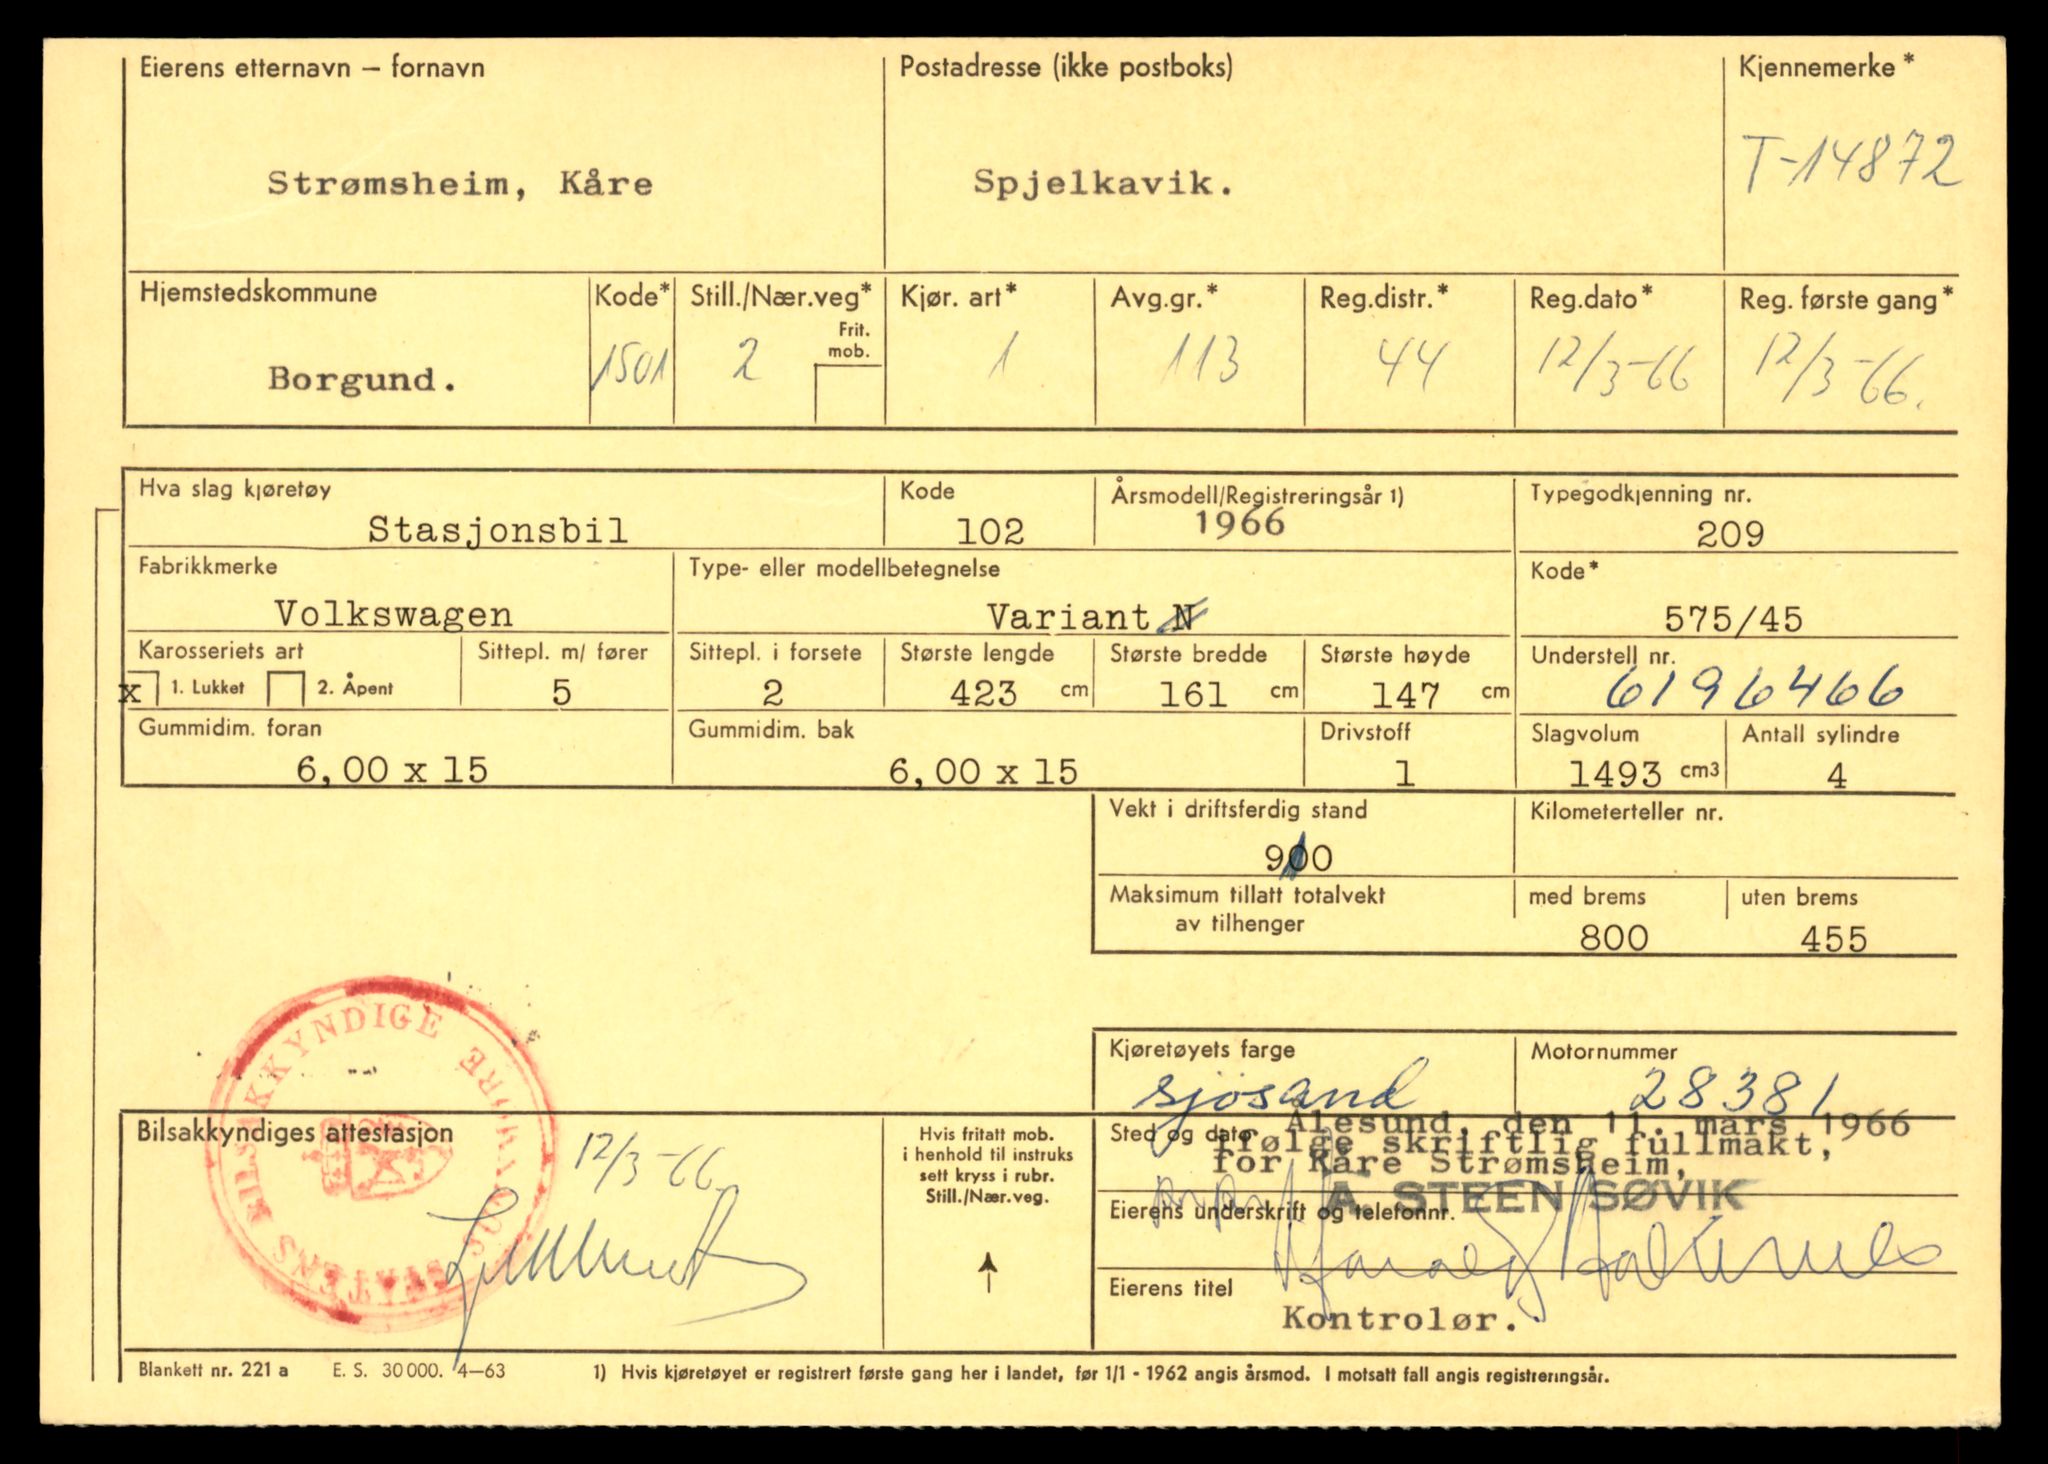 Eierens etternavn – fornavn
Postadresse (ikke postboks)
Kjennemerke *
Strømsheim, Kåre
Spjelkavik.
T-14872
Hjemstedskommune
Kode*
Still./Nær.veg*
Frit. mob.
Kjør. art*
Avg.gr.*
Reg.distr.*
Reg.dato*
Reg. første gang*
Borgund.
1501
2
1
113
44
12/3-66
12/3-66.
Hva slag kjøretøy
Kode
Årsmodell/Registreringsår 1)
Typegodkjenning nr.
Stasjonsbil
102
1966
209
Fabrikkmerke
Type- eller modellbetegnelse
Kode*
Volkswagen
Variant N
575/45
Karosseriets art
Sittepl. m/ fører
Sittepl. i forsete
Største lengde
Største bredde
Største høyde
Understell nr.
x 1. Lukket
2. Åpent
5
2
423 cm
161 cm
147 cm
6196466
Gummidim. foran
Gummidim. bak
Drivstoff
Slagvolum
Antall sylindre
6,00 x 15
6,00 x 15
1
1493 cm3
4
Vekt i driftsferdig stand
Kilometerteller nr.
910
Maksimum tillatt totalvekt
av tilhenger
med brems
uten brems
800
455
Kjøretøyets farge
Motornummer
sjøsand
28381
STATENS BILSAKKYNDIGE
SUNNMØRE
Bilsakkyndiges attestasjon
12/3-66
Hvis fritatt mob.
i henhold til instruks
sett kryss i rubr.
Still./Nær.veg.
Sted og dato
Ålesund, den 11. mars 1966
Ifølge skriftlig fullmakt,
for Kåre Strømsheim,
A. STEEN SØVIK
Eierens underskrift og telefonnr.
Eierens titel
Kontrolør.
Blankett nr. 221 a E. S. 30 000. 4–63
1) Hvis kjøretøyet er registrert første gang her i landet, før 1/1 - 1962 angis årsmod. I motsatt fall angis registreringsår.